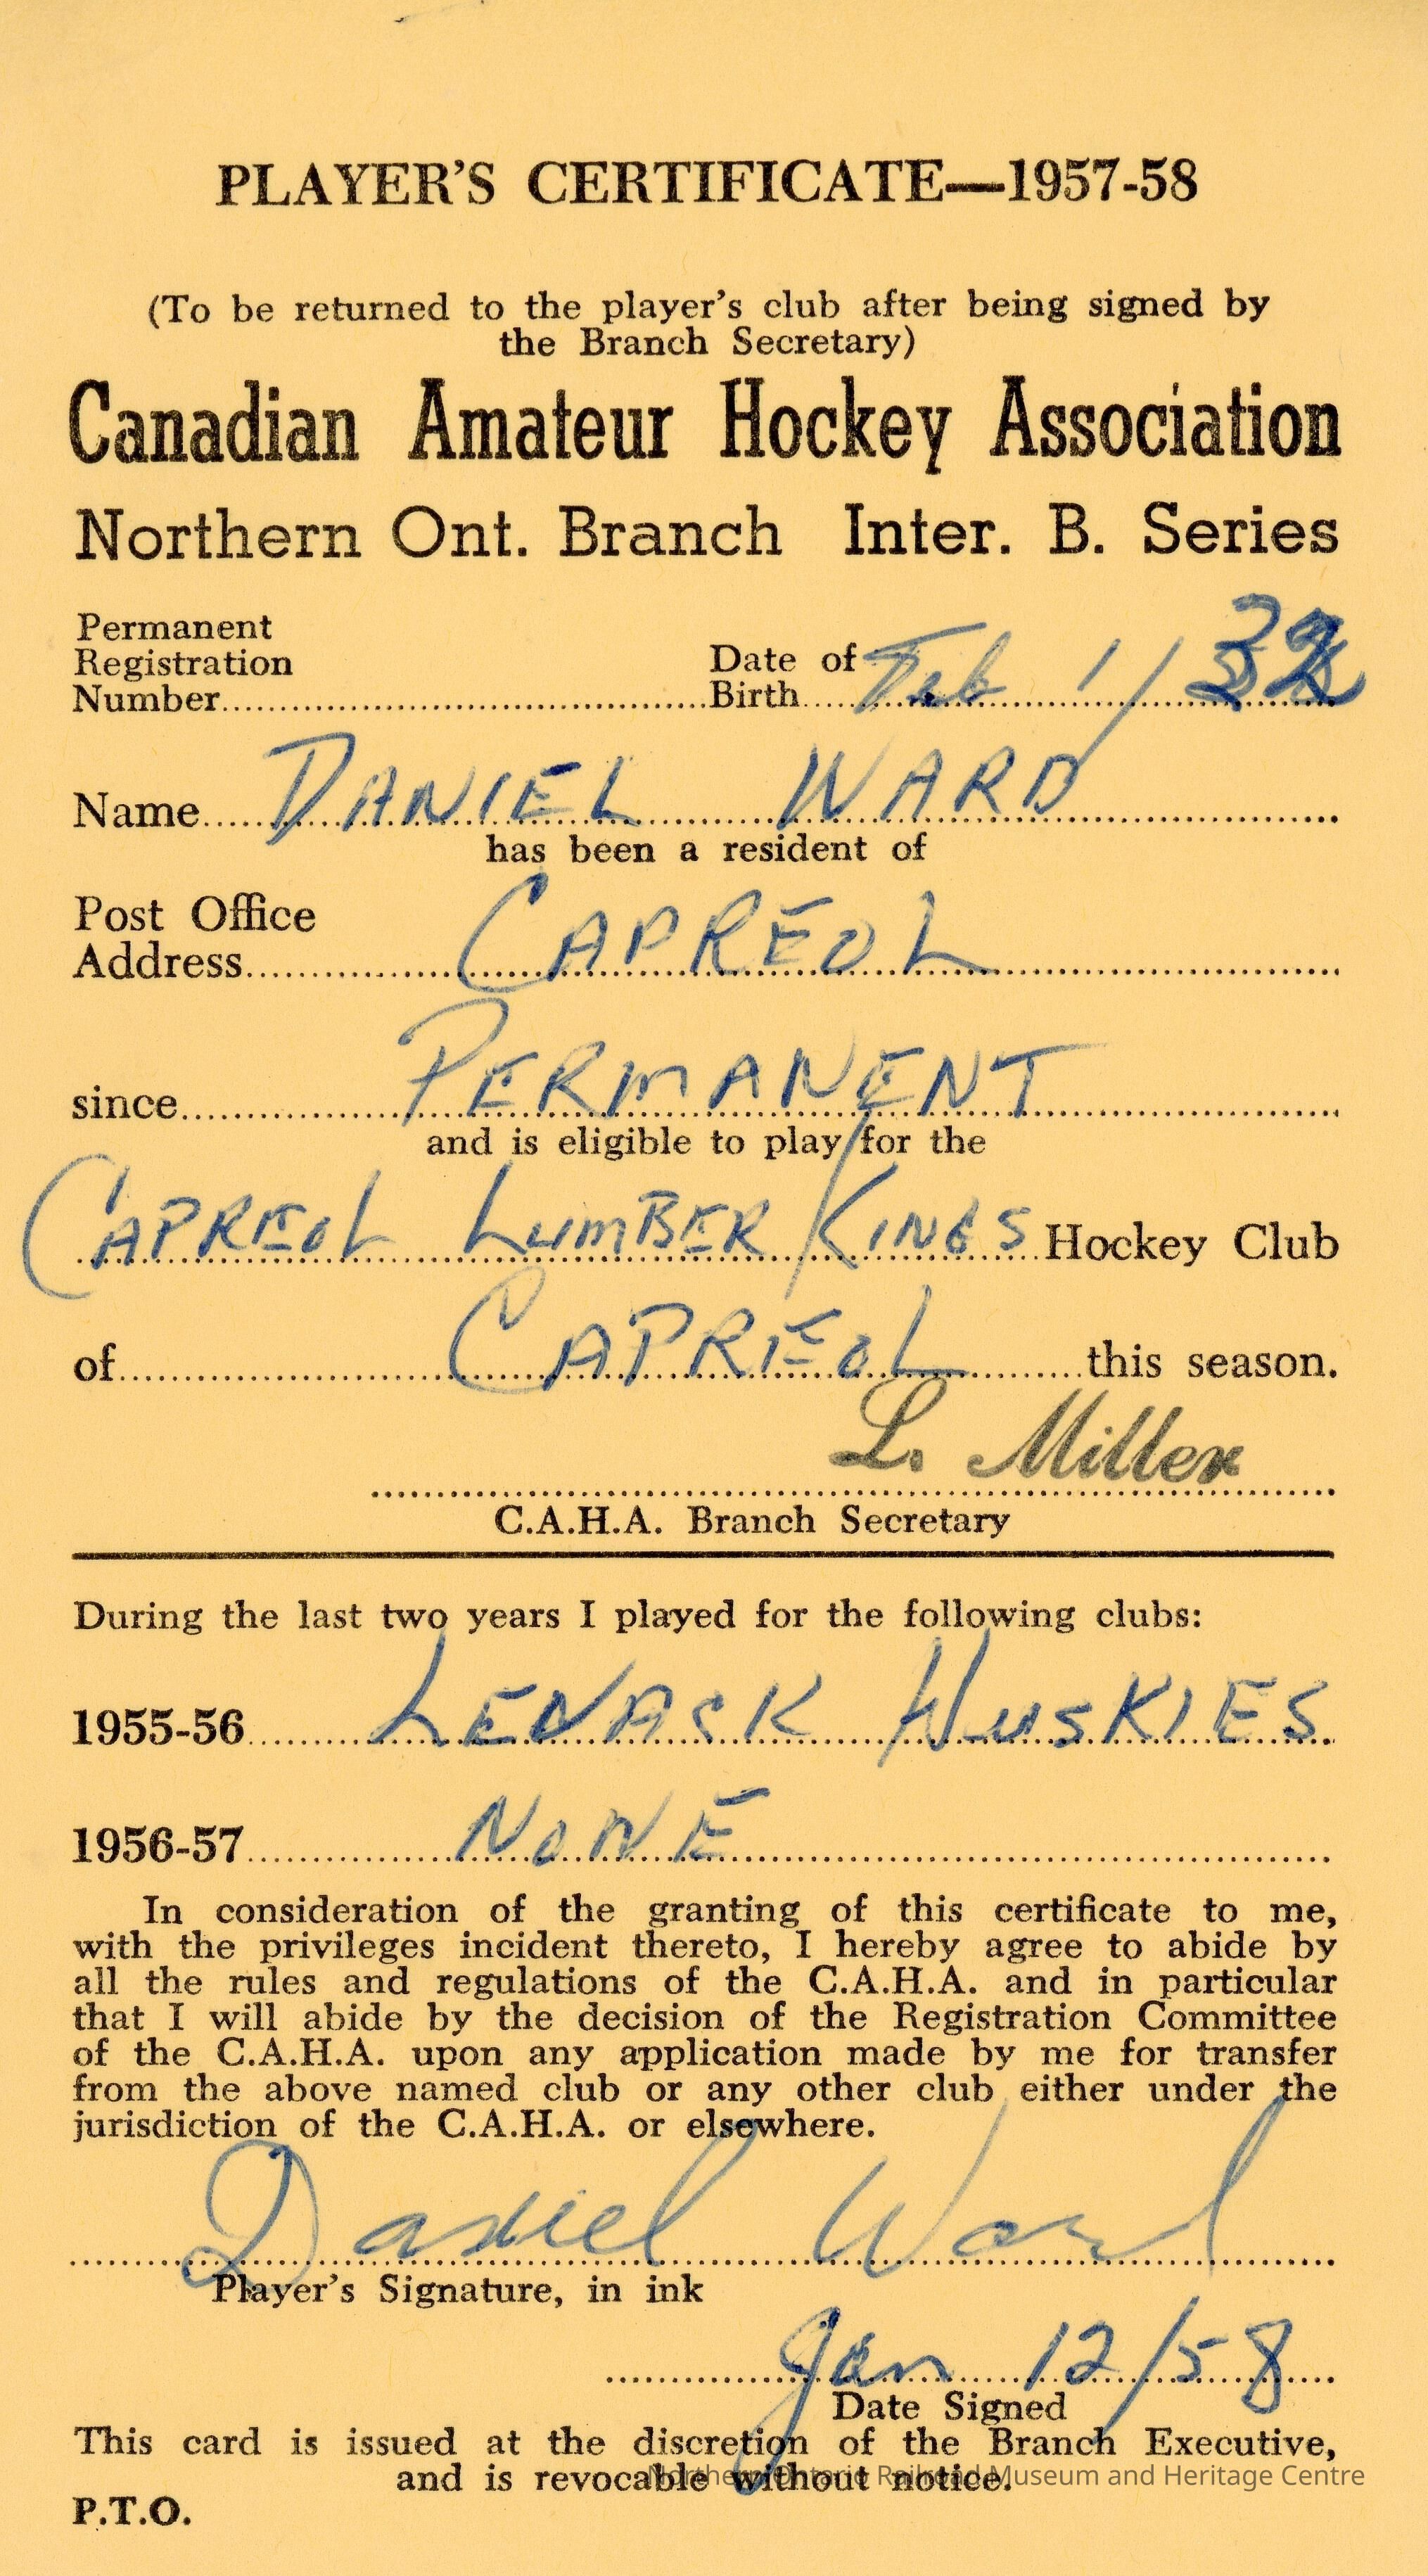 PLAYER'S CERTIFICATE—1957-58
(To be returned to the player's club after being signed by
the Branch Secretary)
Canadian Amateur Hockey Association
Northern Ont. Branch Inter. B. Series
Permanent
Registration
Number
Date of
Birth Feb 1/
Name DANIEL WARD
has been a resident of
Post Office
Address CAPREOL
since PERMANENT
and is eligible to play for the
CAPREOL LUMBER KINGS Hockey Club
of CAPREOL this season.
L. Miller
C.A.H.A. Branch Secretary
During the last two years I played for the following clubs:
1955-56 LENACK HUSKIES
1956-57 NONE
In consideration of the granting of this certificate to me,
with the privileges incident thereto, I hereby agree to abide by
all the rules and regulations of the C.A.H.A. and in particular
that I will abide by the decision of the Registration Committee
of the C.A.H.A. upon any application made by me for transfer
from the above named club or any other club either under the
jurisdiction of the C.A.H.A. or elsewhere.
Daniel Ward
Player's Signature, in ink
Jan 12/58
Date Signed
This card is issued at the discretion of the Branch Executive,
and is revocable without notice.
Northern Ontario Railroad Museum and Heritage Centre
P.T.O.